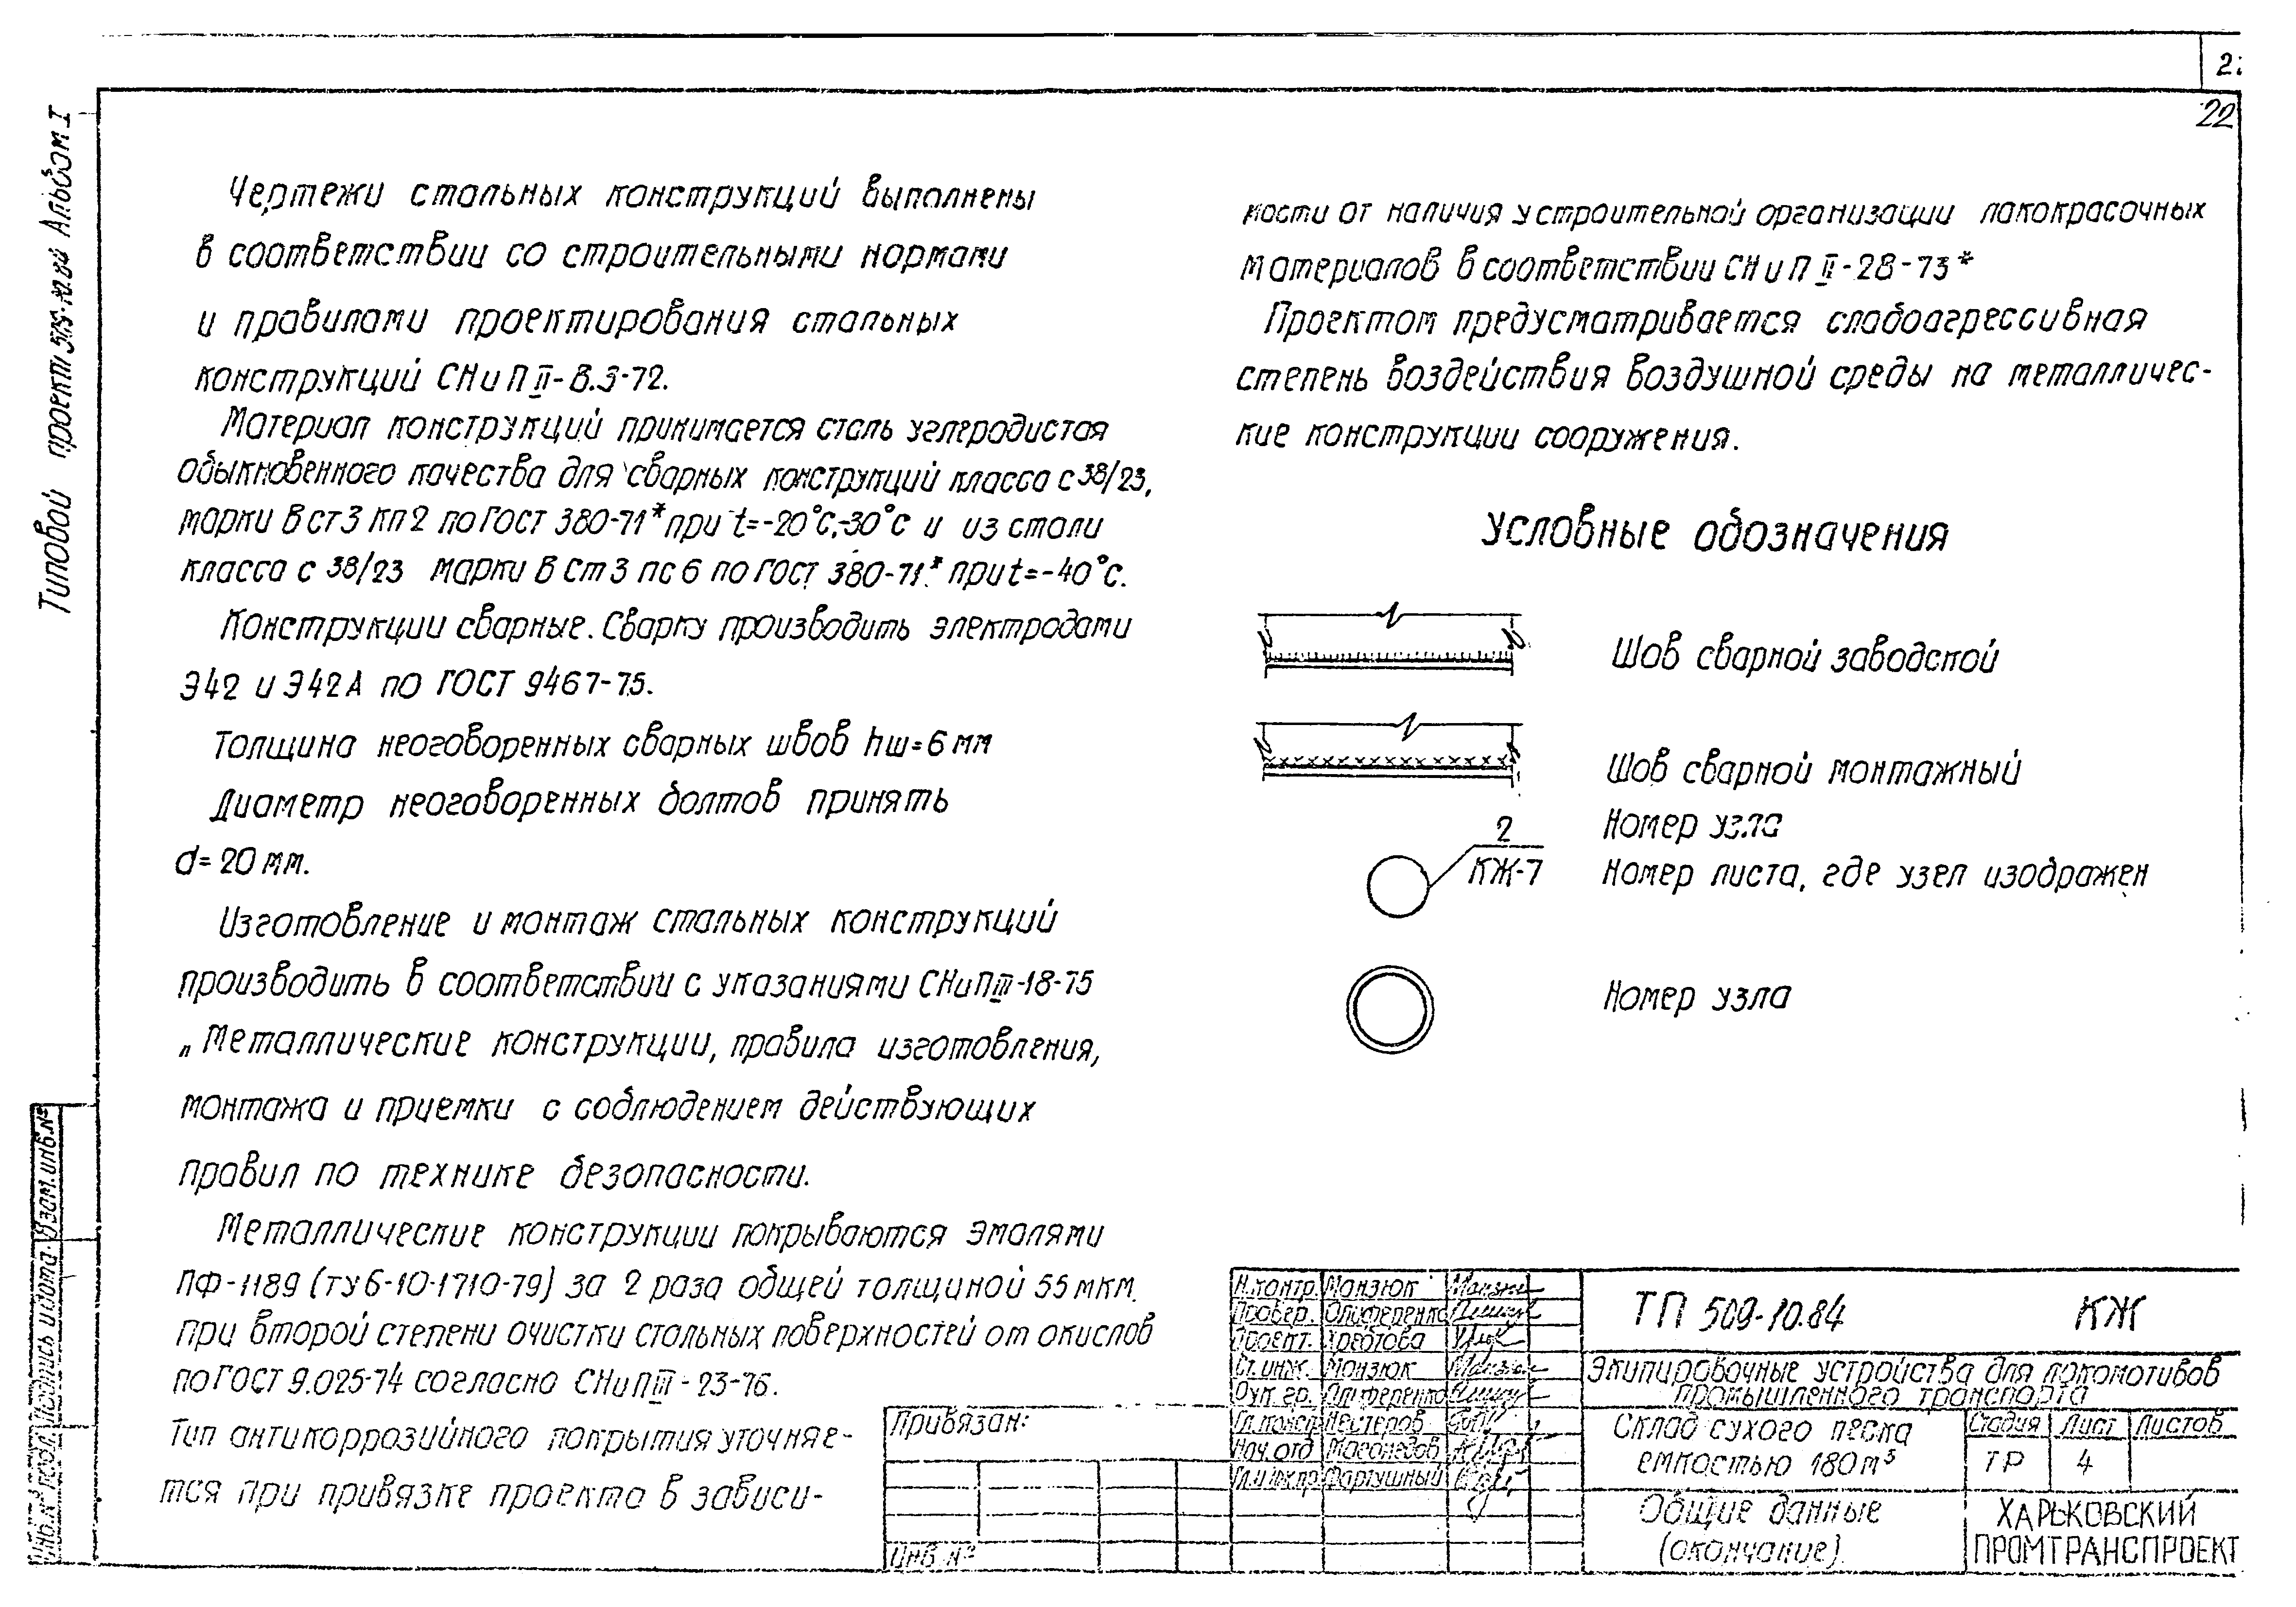 22
Чертежи стальных конструкций выполнены
в соответствии со строительными нормами
и правилами проектирования стальных
конструкций СНиП II-В.3-72.
Материал конструкций принимается сталь углеродистая
обыкновенного качества для сварных конструкций класса с 38/23,
марки Вст3 кп2 по ГОСТ 380-71* при t=-20°С,-30°С и из стали
класса с 38/23 марки Вст3 пс6 по ГОСТ 380-71* при t=-40°С.
Конструкции сварные. Сварку производить электродами
Э42 и Э42А по ГОСТ 9467-75.
Толщина неоговоренных сварных швов hш=6мм
Диаметр неоговоренных болтов принять
d=20мм.
Изготовление и монтаж стальных конструкций
производить в соответствии с указаниями СНиП III-18-75
„Металлические конструкции, правила изготовления,
монтажа и приемки с соблюдением действующих
правил по технике безопасности.
Металлические конструкции покрываются эмалями
ПФ-1189 (ТУ6-10-1710-79) за 2 раза общей толщиной 55мкм.
при второй степени очистки стальных поверхностей от окислов
по ГОСТ 9.025-74 согласно СНиП III-23-76.
Тип антикоррозийного покрытия уточняе-
тся при привязке проекта в зависи-
мости от наличия у строительной организации лакокрасочных
материалов в соответствии СНиП II-28-73*
Проектом предусматривается слабоагрессивная
степень воздействия воздушной среды на металличес-
кие конструкции сооружения.
Условные обозначения
Шов сварной заводской
Шов сварной монтажный
2
Номер узла
КЖ-7
Номер листа, где узел изображен
Номер узла
Типовой проект Альбом I
Взам.инв.№
Подпись и дата
Инв.№ подл.
Привязан:
Инв. №
Н.контр. Манзюк
Провер. Олиференко
Проект. Хребтова
Ст.инж. Манзюк
Рук. гр. Олиференко
Гл.констр Нестеров
Нач.отд
Гл.инж.пр Фартушный
ТП 509-10.84 КЖ
Экипировочные устройства для локомотивов
промышленного транспорта
Склад сухого песка
емкостью 180м³
Стадия Лист Листов
ТР 4
Общие данные
(окончание).
ХАРЬКОВСКИЙ
ПРОМТРАНСПРОЕКТ